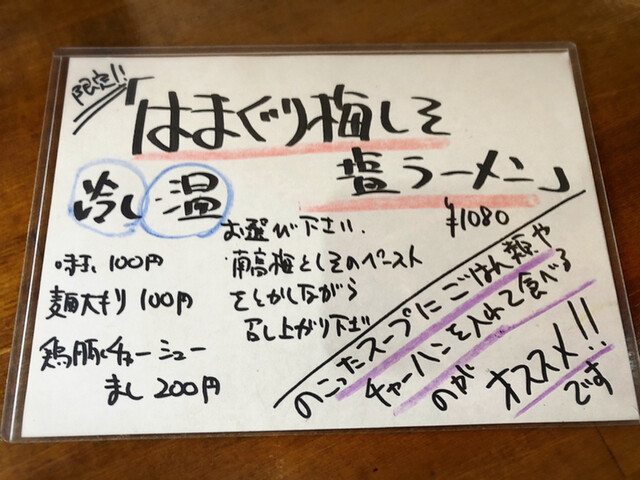 限定!!
「はまぐり梅しそ
塩ラーメン」
冷し・温
¥1080
お選び下さい.
味玉 100円
麺大もり 100円
鶏豚チャーシュー
まし 200円
南高梅としそのペースト
をとかしながら
召し上がり下さい
のこったスープにごはん類や
チャーハンを入れて食べる
のが
オススメ!!
です